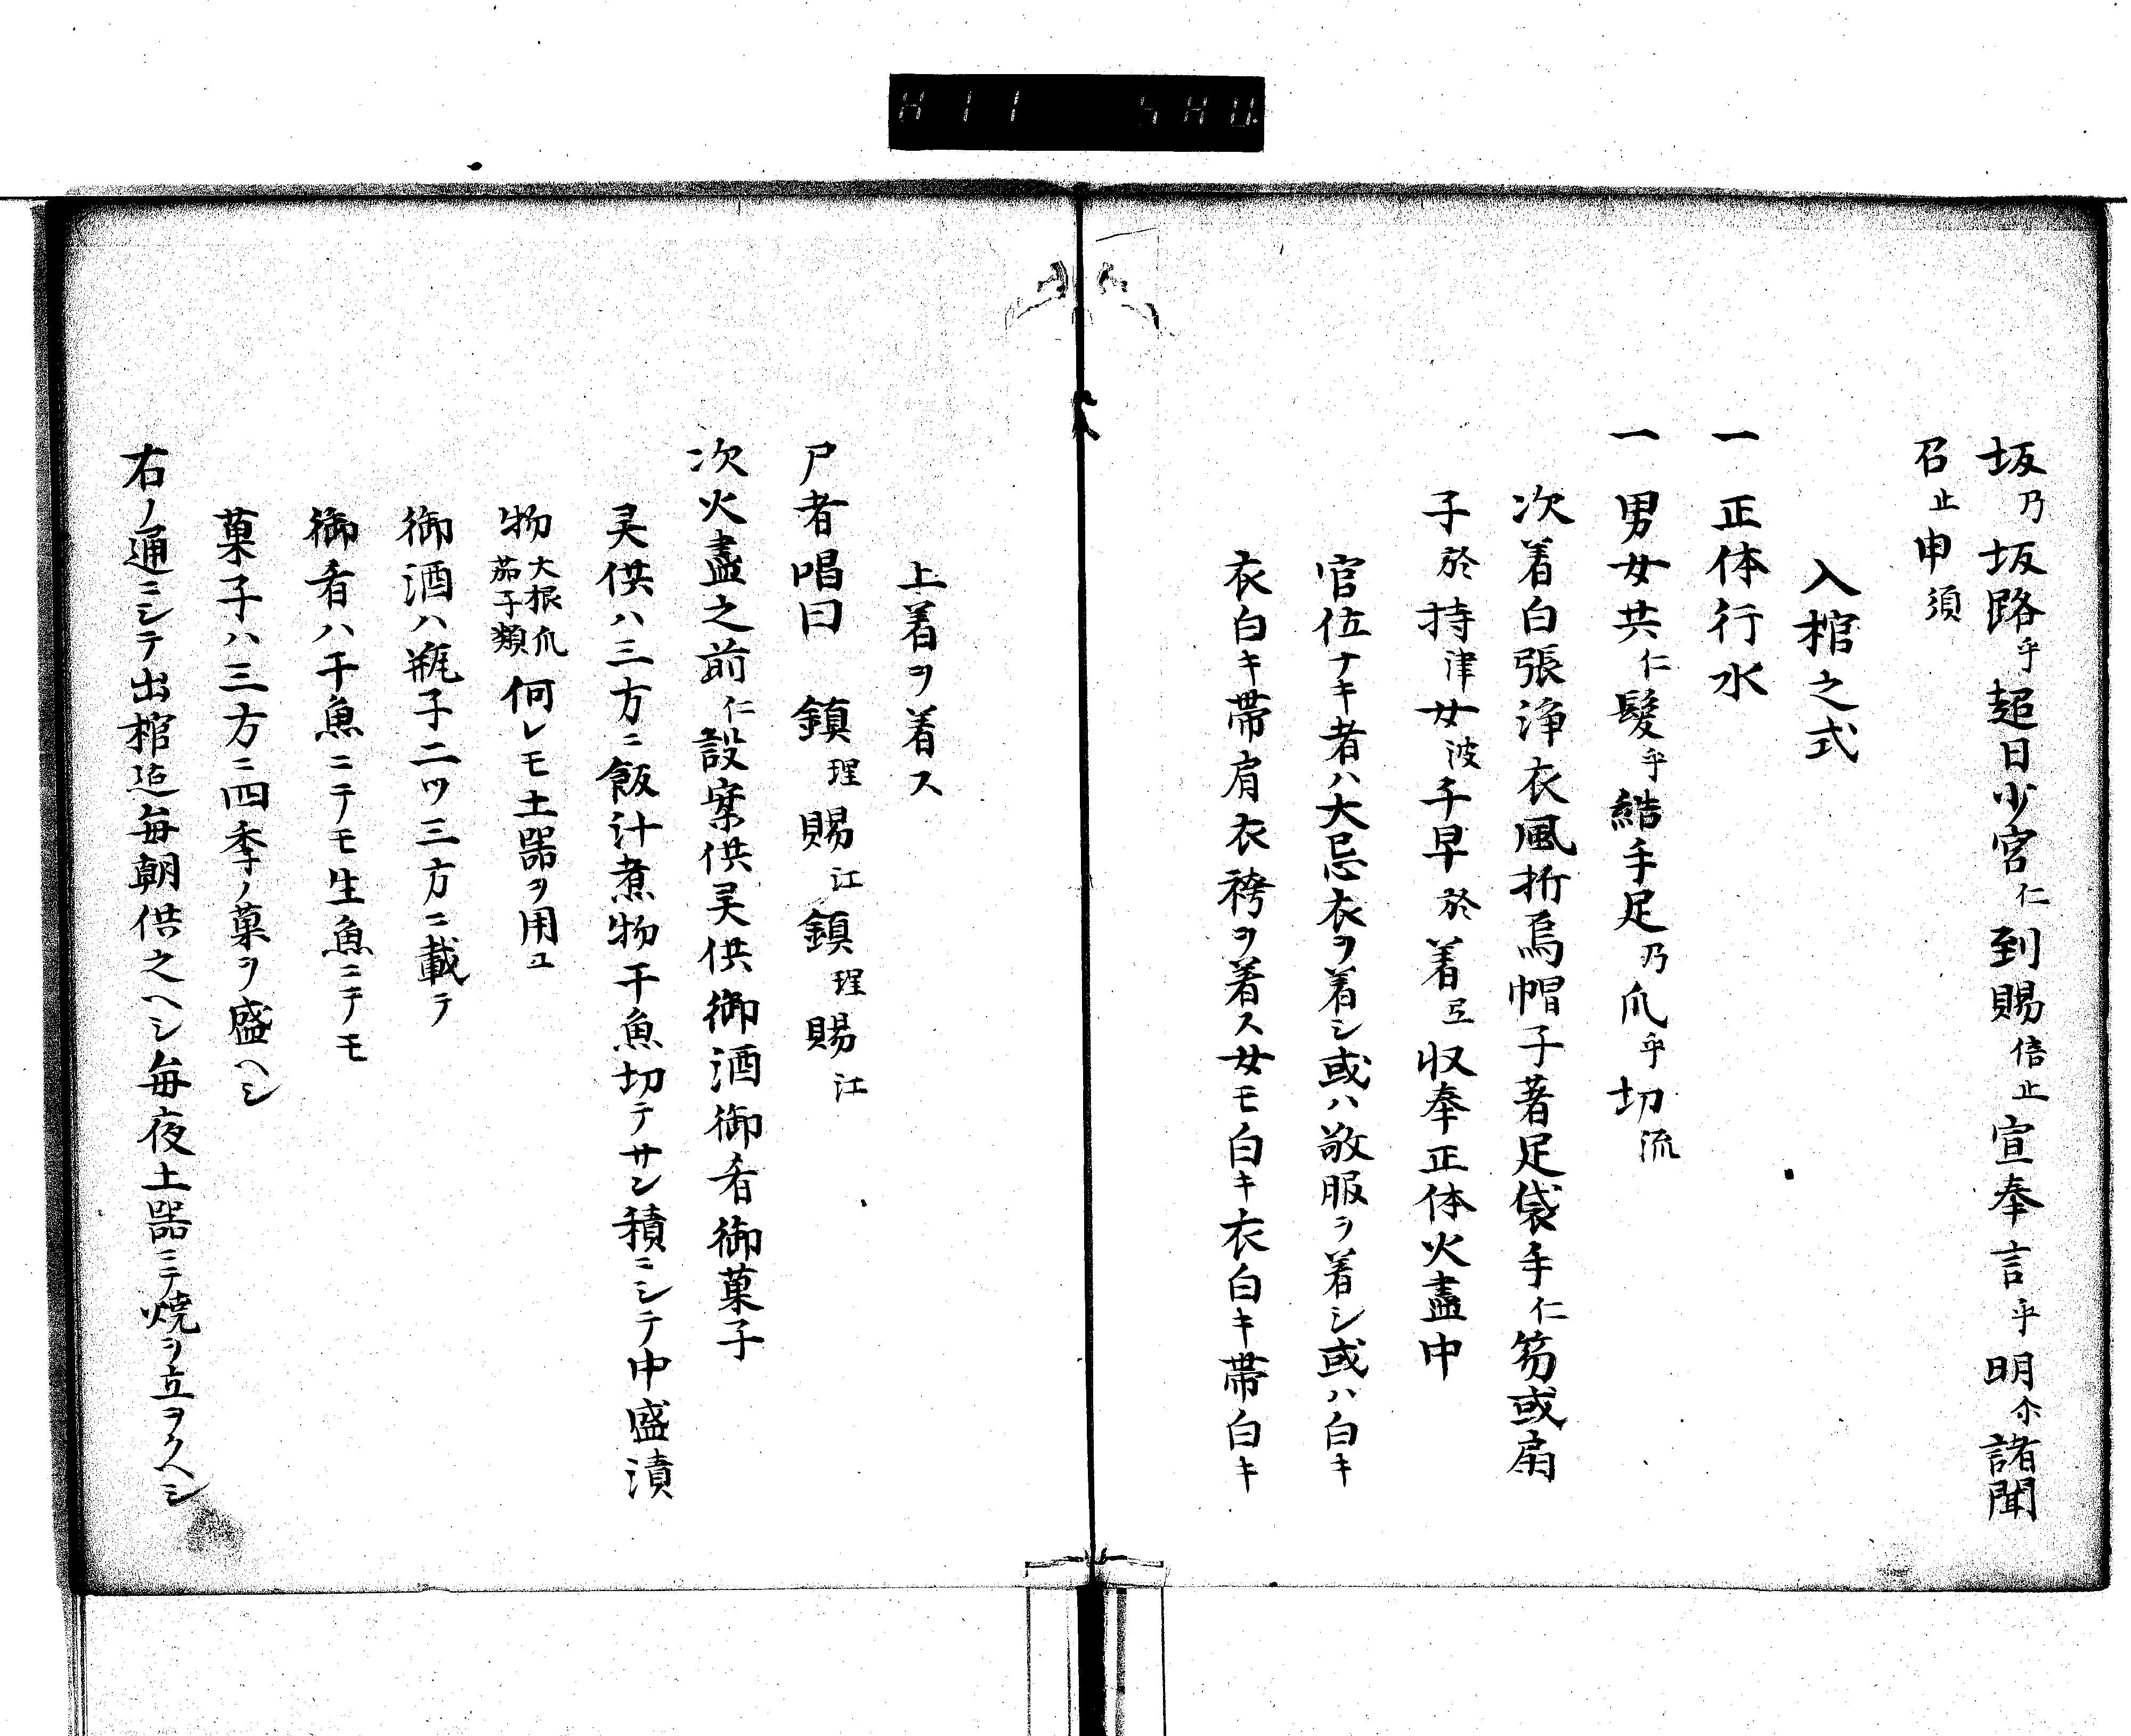 坂乃坂路乎超日少宮仁到賜倍止宣奉言乎明尓諸聞
召止申須
入棺之式
一正体行水
一男女共仁髪乎結手足乃爪乎切流
次着白張浄衣風折烏帽子著足袋手仁笏或扇
子於持津女波千早於着弖収奉正体火盡中
官位ナキ者ハ大忌衣ヲ着シ或ハ敬服ヲ着シ或ハ白キ
衣白キ帯肩衣袴ヲ着ス女モ白キ衣白キ帯白キ
上着ヲ着ス
尸者唱曰 鎮理賜江鎮理賜江
次火盡之前仁設案供灵供御酒御肴御菓子
灵供ハ三方ニ飯汁煮物干魚切テサン積ニシテ中盛漬
物大根爪茄子類何レモ土器ヲ用ユ
御酒ハ瓶子二ツ三方ニ載テ
御肴ハ干魚ニテモ生魚ニテモ
菓子ハ三方ニ四季ノ菓ヲ盛ヘシ
右ノ通ニシテ出棺迠毎朝供之ヘシ毎夜土器ニテ焼ヲ立ヲクヘシ